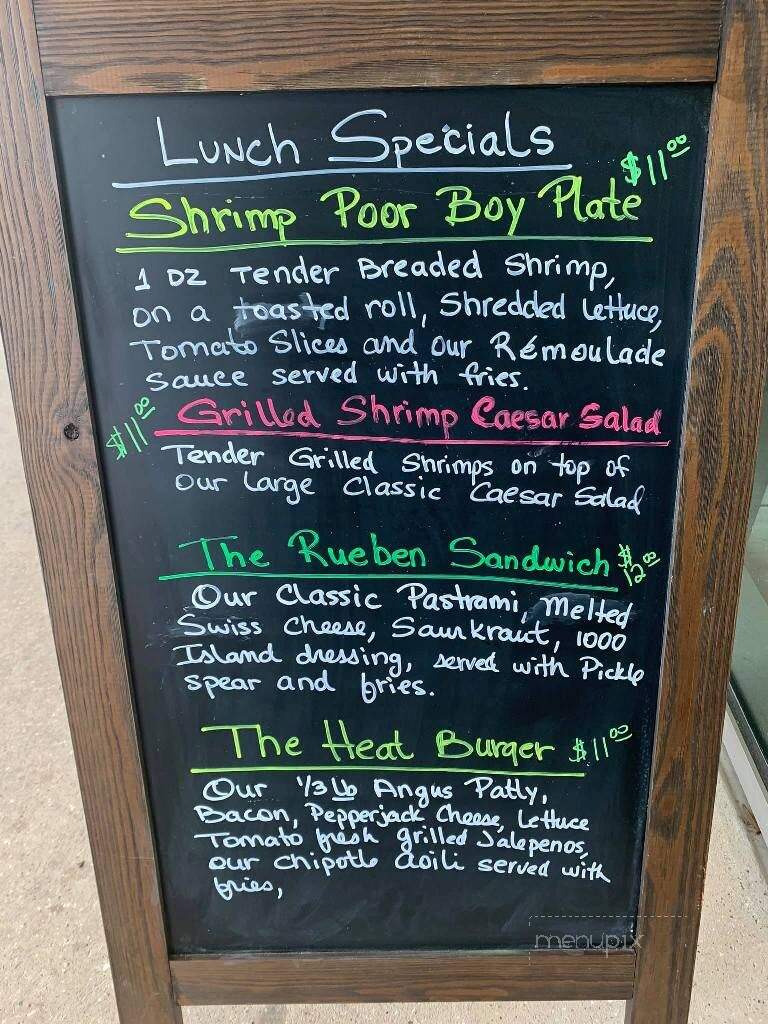 Lunch Specials
$11.00
Shrimp Poor Boy Plate
1 DZ Tender Breaded Shrimp,
on a toasted roll, Shredded Lettuce,
Tomato Slices and our Rémoulade
Sauce served with fries.
$11.00 Grilled Shrimp Caesar Salad
Tender Grilled Shrimps on top of
our Large Classic Caesar Salad
The Rueben Sandwich $12.00
Our Classic Pastrami, Melted
Swiss Cheese, Saurkraut, 1000
Island dressing, served with Pickle
spear and fries.
The Heat Burger $11.00
Our 1/3 lb Angus Patty,
Bacon, Pepperjack Cheese, Lettuce
Tomato fresh grilled Jalepenos,
our chipotle aoili served with
fries,
menupix